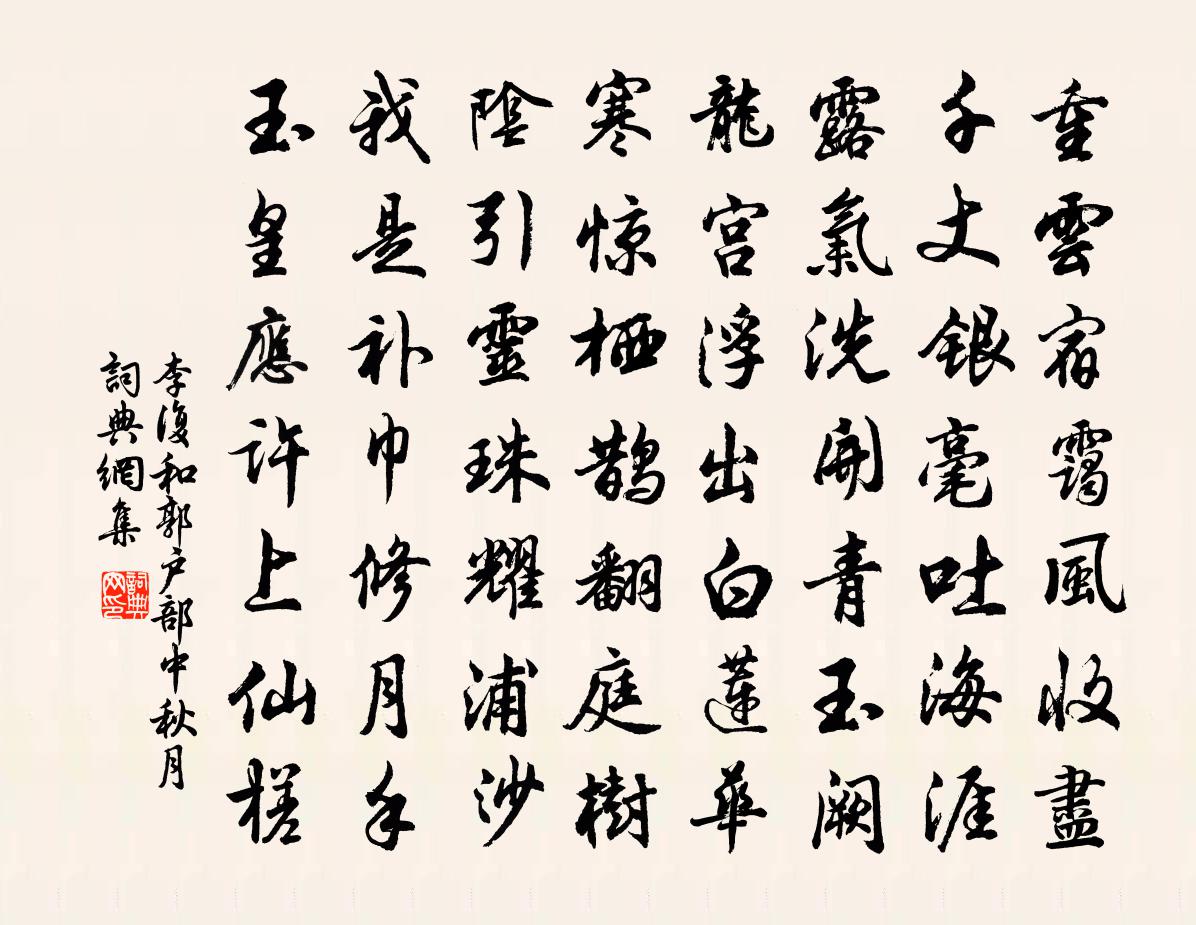 重雲宿靄風收盡
千丈銀毫吐海涯
露氣洗開青玉闕
龍宮浮出白蓮華
寒惊栖鵲翻庭樹
陰引靈珠耀浦沙
我是补巾修月手
玉皇應許上仙槎
李復和郭户部中秋月
詞典網集
詞典网印